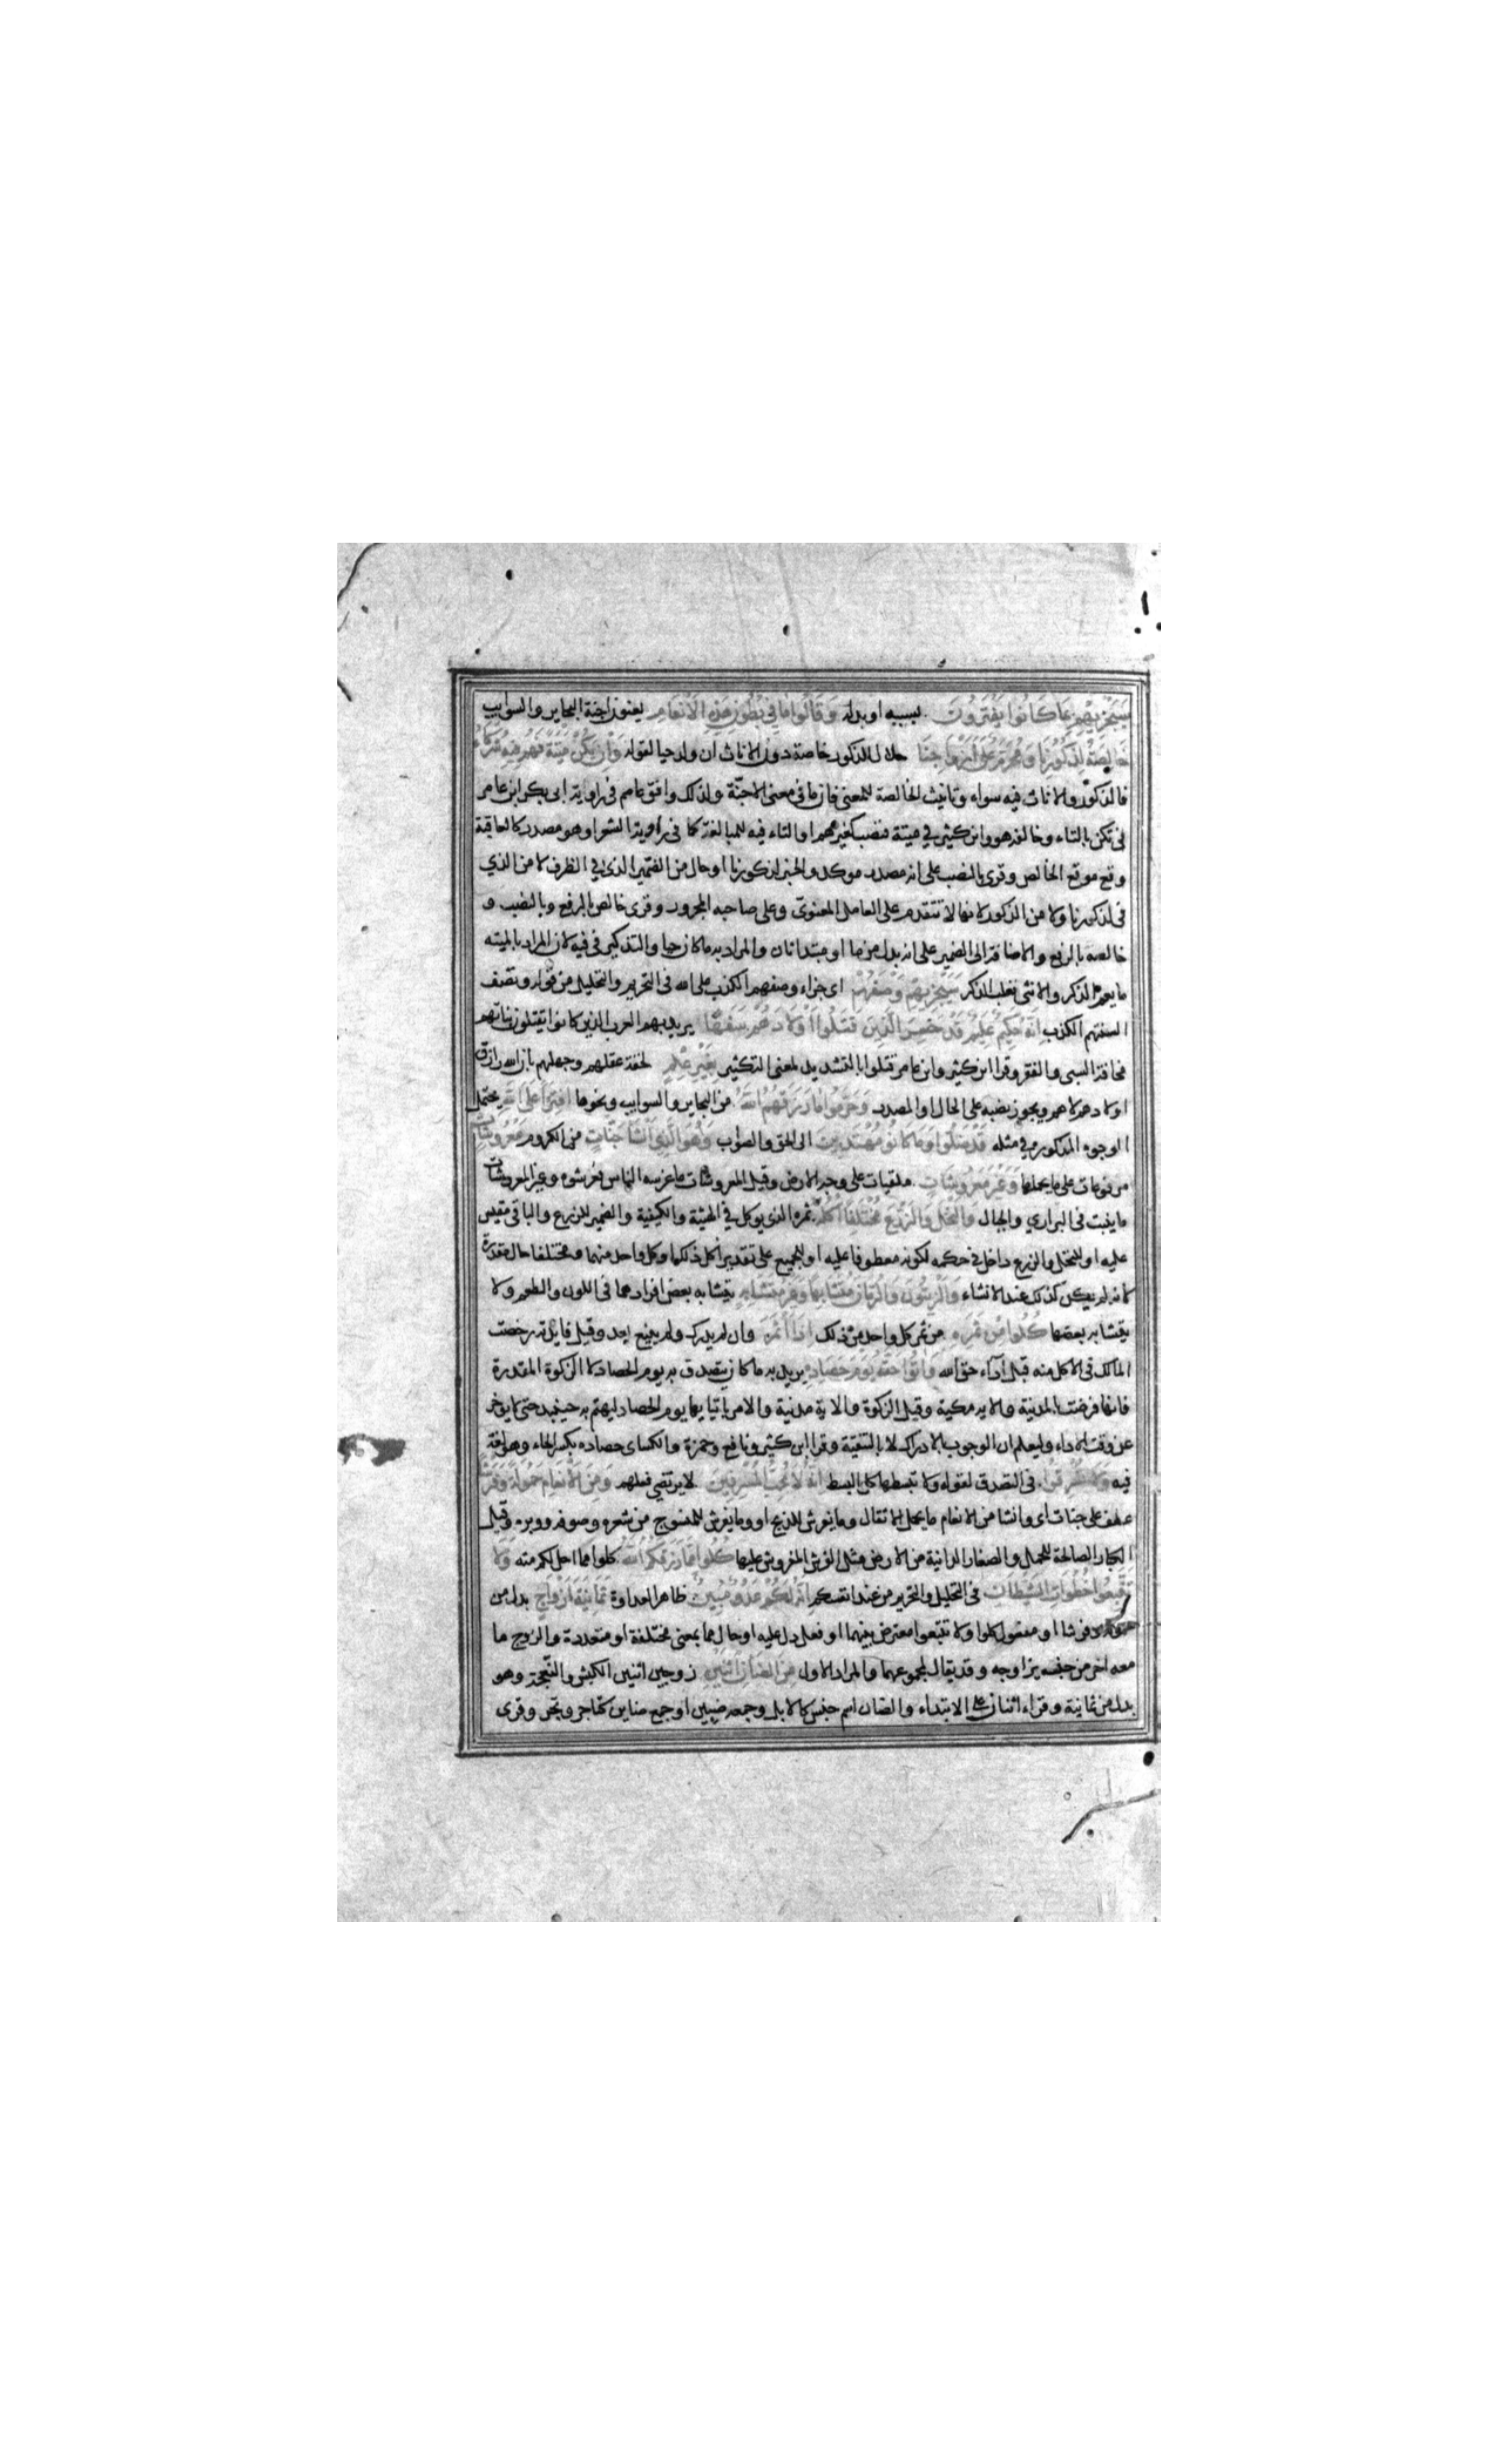 سَيَجْزِيهِمْ بِمَا كَانُوا يَفْتَرُونَ بسببه او بدله وَقَالُوا مَا فِي بُطُونِ هَذِهِ الْأَنْعَامِ يعنون اجنة البحاير والسوايب
خَالِصَةٌ لِذُكُورِنَا وَمُحَرَّمٌ عَلَى أَزْوَاجِنَا حلال للذكور خاصة دون الاناث ان ولد حيا لقوله وَإِنْ يَكُنْ مَيْتَةً فَهُمْ فِيهِ شُرَكَاءُ
فالذكور والاناث فيه سواء وتانيث الخالصة للمعنى فان ما فى معنى الاجنّة ولذلك وافق عاصم فى رواية ابى بكر ابن عامر
فى تكن بالتاء وخالفه هو وابن كثير في ميتة فنصب كغيرهم او التاء فيه للمبالغة كما فى رواية الشعر او هو مصدر كالعاقبة
وقع موقع الخالص وقرى بالنصب على انه مصدر موكد والخبر لذكورنا او حال من الضمير الذى في الظرف لا من الذي
فى لذكورنا ولا من الذكور لانها لا تتقدم على العامل المعنوى وعلى صاحبه المجرور وقرى خالص بالرفع وبالنصب و
خالصه بالرفع والاضافة الى الضمير على انه بدل من ما او مبتدا ثان والمراد به ما كان حيا والتذكير فى فيه لان المراد بالميته
ما يعم الذكر والانثى فغلب الذكر سَيَجْزِيهِمْ وَصْفَهُمْ اى جزاء وصفهم الكذب على الله فى التحريم والتحليل من قوله وتصف
السنتهم الكذب إِنَّهُ حَكِيمٌ عَلِيمٌ قَدْ خَسِرَ الَّذِينَ قَتَلُوا أَوْلَادَهُمْ سَفَهًا يريد بهم العرب الذين كانوا يقتلون بناتهم
مخافة السبى والفقر وقرا ابن كثير وابن عامر قتلوا بالتشديد لمعنى التكثير بِغَيْرِ عِلْمٍ لخفة عقلهم وجهلهم بان الله رازق
اولادهم لا هم ويجوز نصبه على الحال او المصدر وَحَرَّمُوا مَا رَزَقَهُمُ اللَّهُ من البحاير والسوايب ونحوها افْتِرَاءً عَلَى اللَّهِ يحتمل
الوجوه المذكورة في مثله قَدْ ضَلُّوا وَمَا كَانُوا مُهْتَدِينَ الى الحق والصواب وَهُوَ الَّذِي أَنْشَأَ جَنَّاتٍ من الكروم مَعْرُوشَاتٍ
مرفوعات على ما يحملها وَغَيْرَ مَعْرُوشَاتٍ ملقيات على وجه الارض وقيل المعروشات ما غرسه الناس فعرشوه وغير المعروشات
ما ينبت فى البراري والجبال وَالنَّخْلَ وَالزَّرْعَ مُخْتَلِفًا أُكُلُهُ ثمره الذى يوكل في الهيئة والكيفية والضمير للزرع والباقى مقيس
عليه او للنخل والزرع داخل في حكمه لكونه معطوفا عليه او للجميع على تقدير اكل ذلك او كل واحد منهما ومختلفا حال مقدرة
لانه لم يكن كذلك عند الانشاء وَالزَّيْتُونَ وَالرُّمَّانَ مُتَشَابِهًا وَغَيْرَ مُتَشَابِهٍ يتشابه بعض افرادهما فى اللون والطعم ولا
يتشابه بعضها كُلُوا مِنْ ثَمَرِهِ من ثمر كل واحد من ذلك إِذَا أَثْمَرَ وان لم يدرك ولم يينع بعد وقيل فايدته رخصت
المالك فى الاكل منه قبل اداء حق الله وَآتُوا حَقَّهُ يَوْمَ حَصَادِهِ يريد به ما كان يتصدق به يوم الحصاد لا الزكوة المقدرة
فانها فرضت بالمدينة والاية مكية وقيل الزكوة والاية مدنية والامر باتيانها يوم الحصاد ليهتم به حينئذ حتى لا يوخر
عن وقت الاداء وليعلم ان الوجوب بالادراك لا بالتنقية وقرا ابن كثير ونافع وحمزة والكساى حصاده بكسر الحاء وهو لغة
فيه وَلَا تُسْرِفُوا فى التصدق لقوله ولا تبسطها كل البسط إِنَّهُ لَا يُحِبُّ الْمُسْرِفِينَ لا يرتضى فعلهم وَمِنَ الْأَنْعَامِ حَمُولَةً وَفَرْشًا
عطف على جنات اى وانشا من الانعام ما يحمل الاثقال وما يفرش للذبح او وما يفرش للمنسوج من شعره وصوفه ووبره وقيل
الكبار الصالحة للحمل والصغار الدانية من الارض مثل الفرش المفروش عليها كُلُوا مِمَّا رَزَقَكُمُ اللَّهُ كلوا مما احل لكم منه وَلَا
تَتَّبِعُوا خُطُوَاتِ الشَّيْطَانِ فى التحليل والتحريم من عند انفسكم إِنَّهُ لَكُمْ عَدُوٌّ مُبِينٌ ظاهر العداوة ثَمَانِيَةَ أَزْوَاجٍ بدل من
حمولة وفرشا او مفعول كلوا ولا تتبعوا معترض بينهما او فعل دل عليه او حال مما بمعنى مختلفة او متعددة والزوج ما
معه اخر من جنسه يزاوجه وقد يقال لمجموعهما والمراد الاول مِنَ الضَّأْنِ اثْنَيْنِ زوجين اثنين الكبش والنعجة وهو
بدل من ثمانية وقراء اثنان على الابتداء والضان اسم جنس كالابل وجمعه ضيين او جمع ضاين كتاجر وتجر وقرى